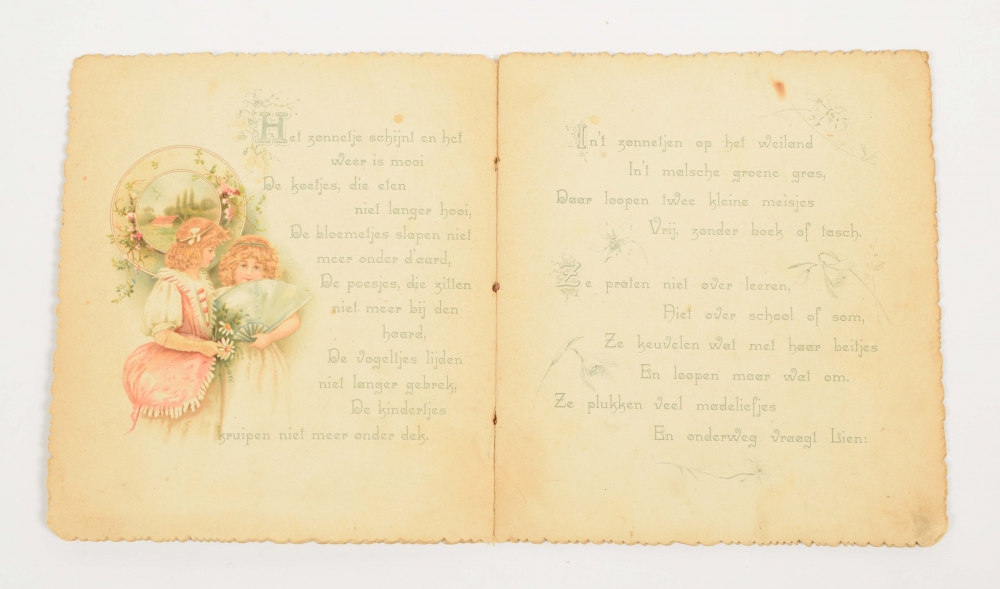 Het zonnetje schijnt en het
weer is mooi
De koetjes, die eten
niet langer hooi,
De bloemetjes slapen niet
meer onder d'aard,
De poesjes, die zitten
niet meer bij den
haard,
De vogeltjes lijden
niet langer gebrek,
De kindertjes
kruipen niet meer onder dek.
In't zonnetjen op het weiland
In't malsche groene gras,
Daar loopen twee kleine meisjes
Vrij, zonder boek of tasch.
Ze praten niet over leeren,
Niet over school of som,
Ze keuvelen wat met haar beitjes
En loopen maar wat om.
Ze plukken veel madeliefjes
En onderweg vraagt Lien: